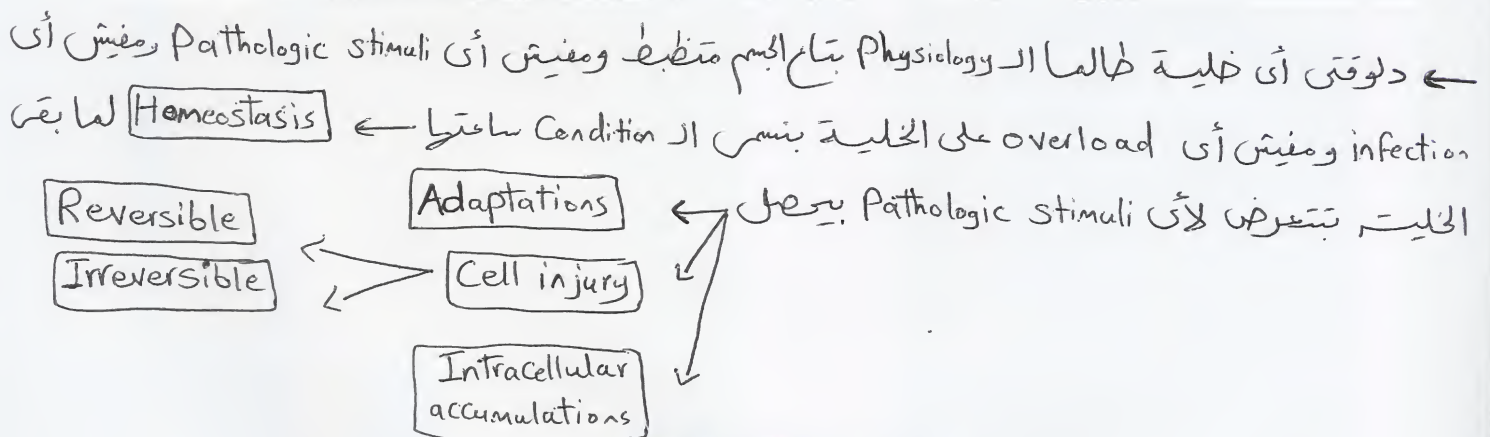 ← دلوقتى أى خلية طالما الـ Physiology بتاع الجسم متظبط ومفيش أى Pathologic stimuli ومفيش أى
infection ومفيش أى overload على الخلية بنسمى الـ Condition ساعتها ← Homeostasis لما بقى
الخلية تتعرض لأى Pathologic stimuli بيحصل
Adaptations
Cell injury
Reversible
Irreversible
Intracellular
accumulations